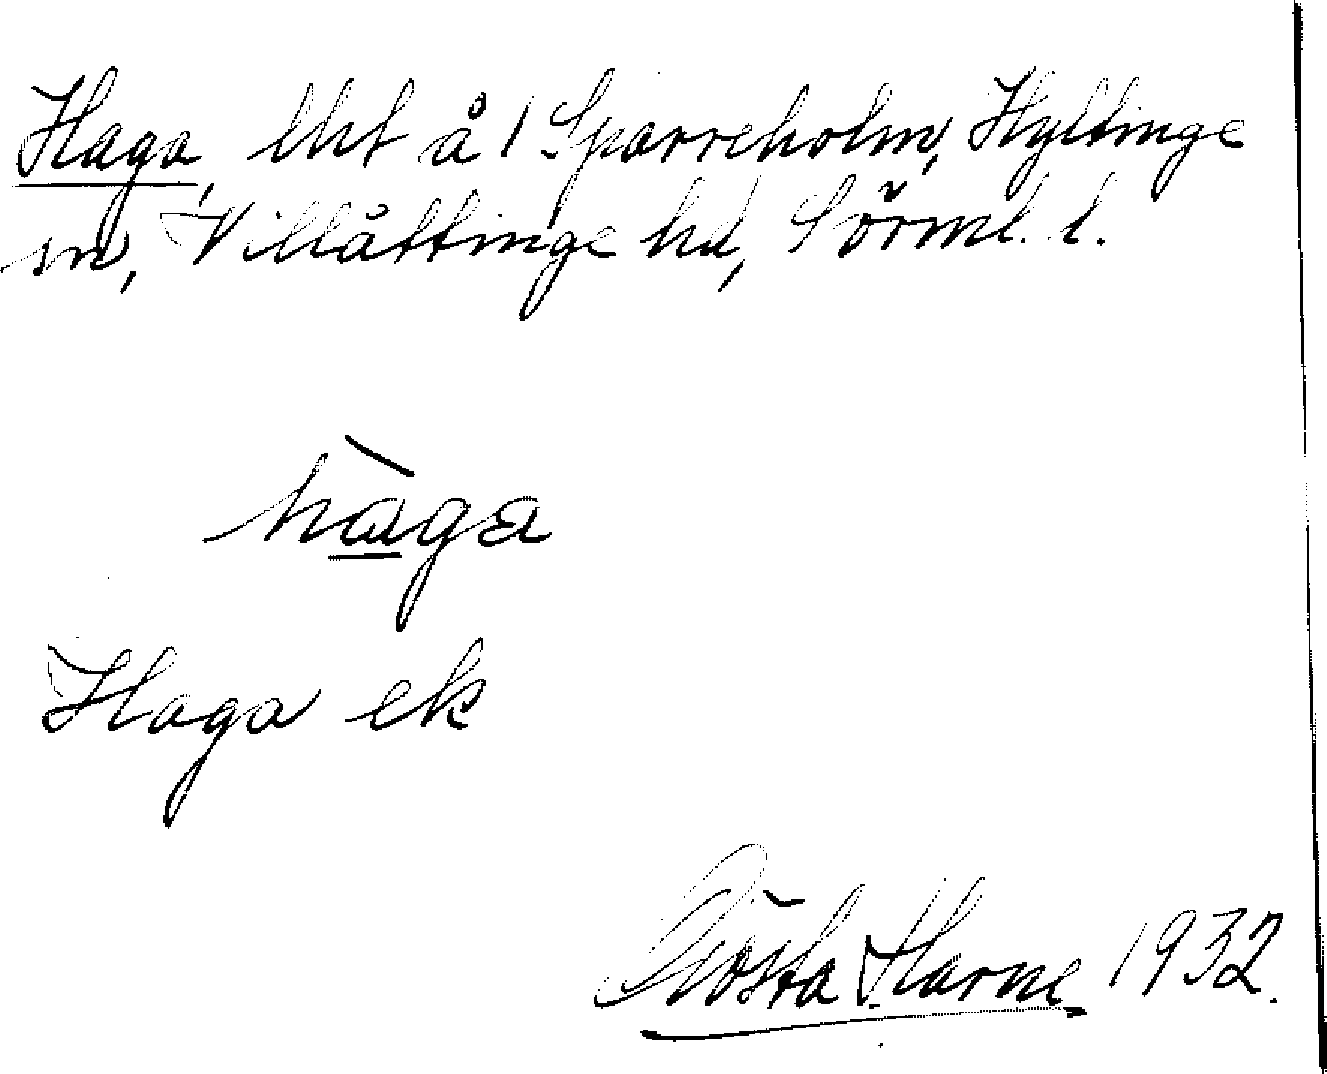 Haga, lht å 1 Sparreholm, Hyltinge
sn, Villåttinge hd, Sörml. l.
hàga
Haga ek
Gösta Harne 1932.